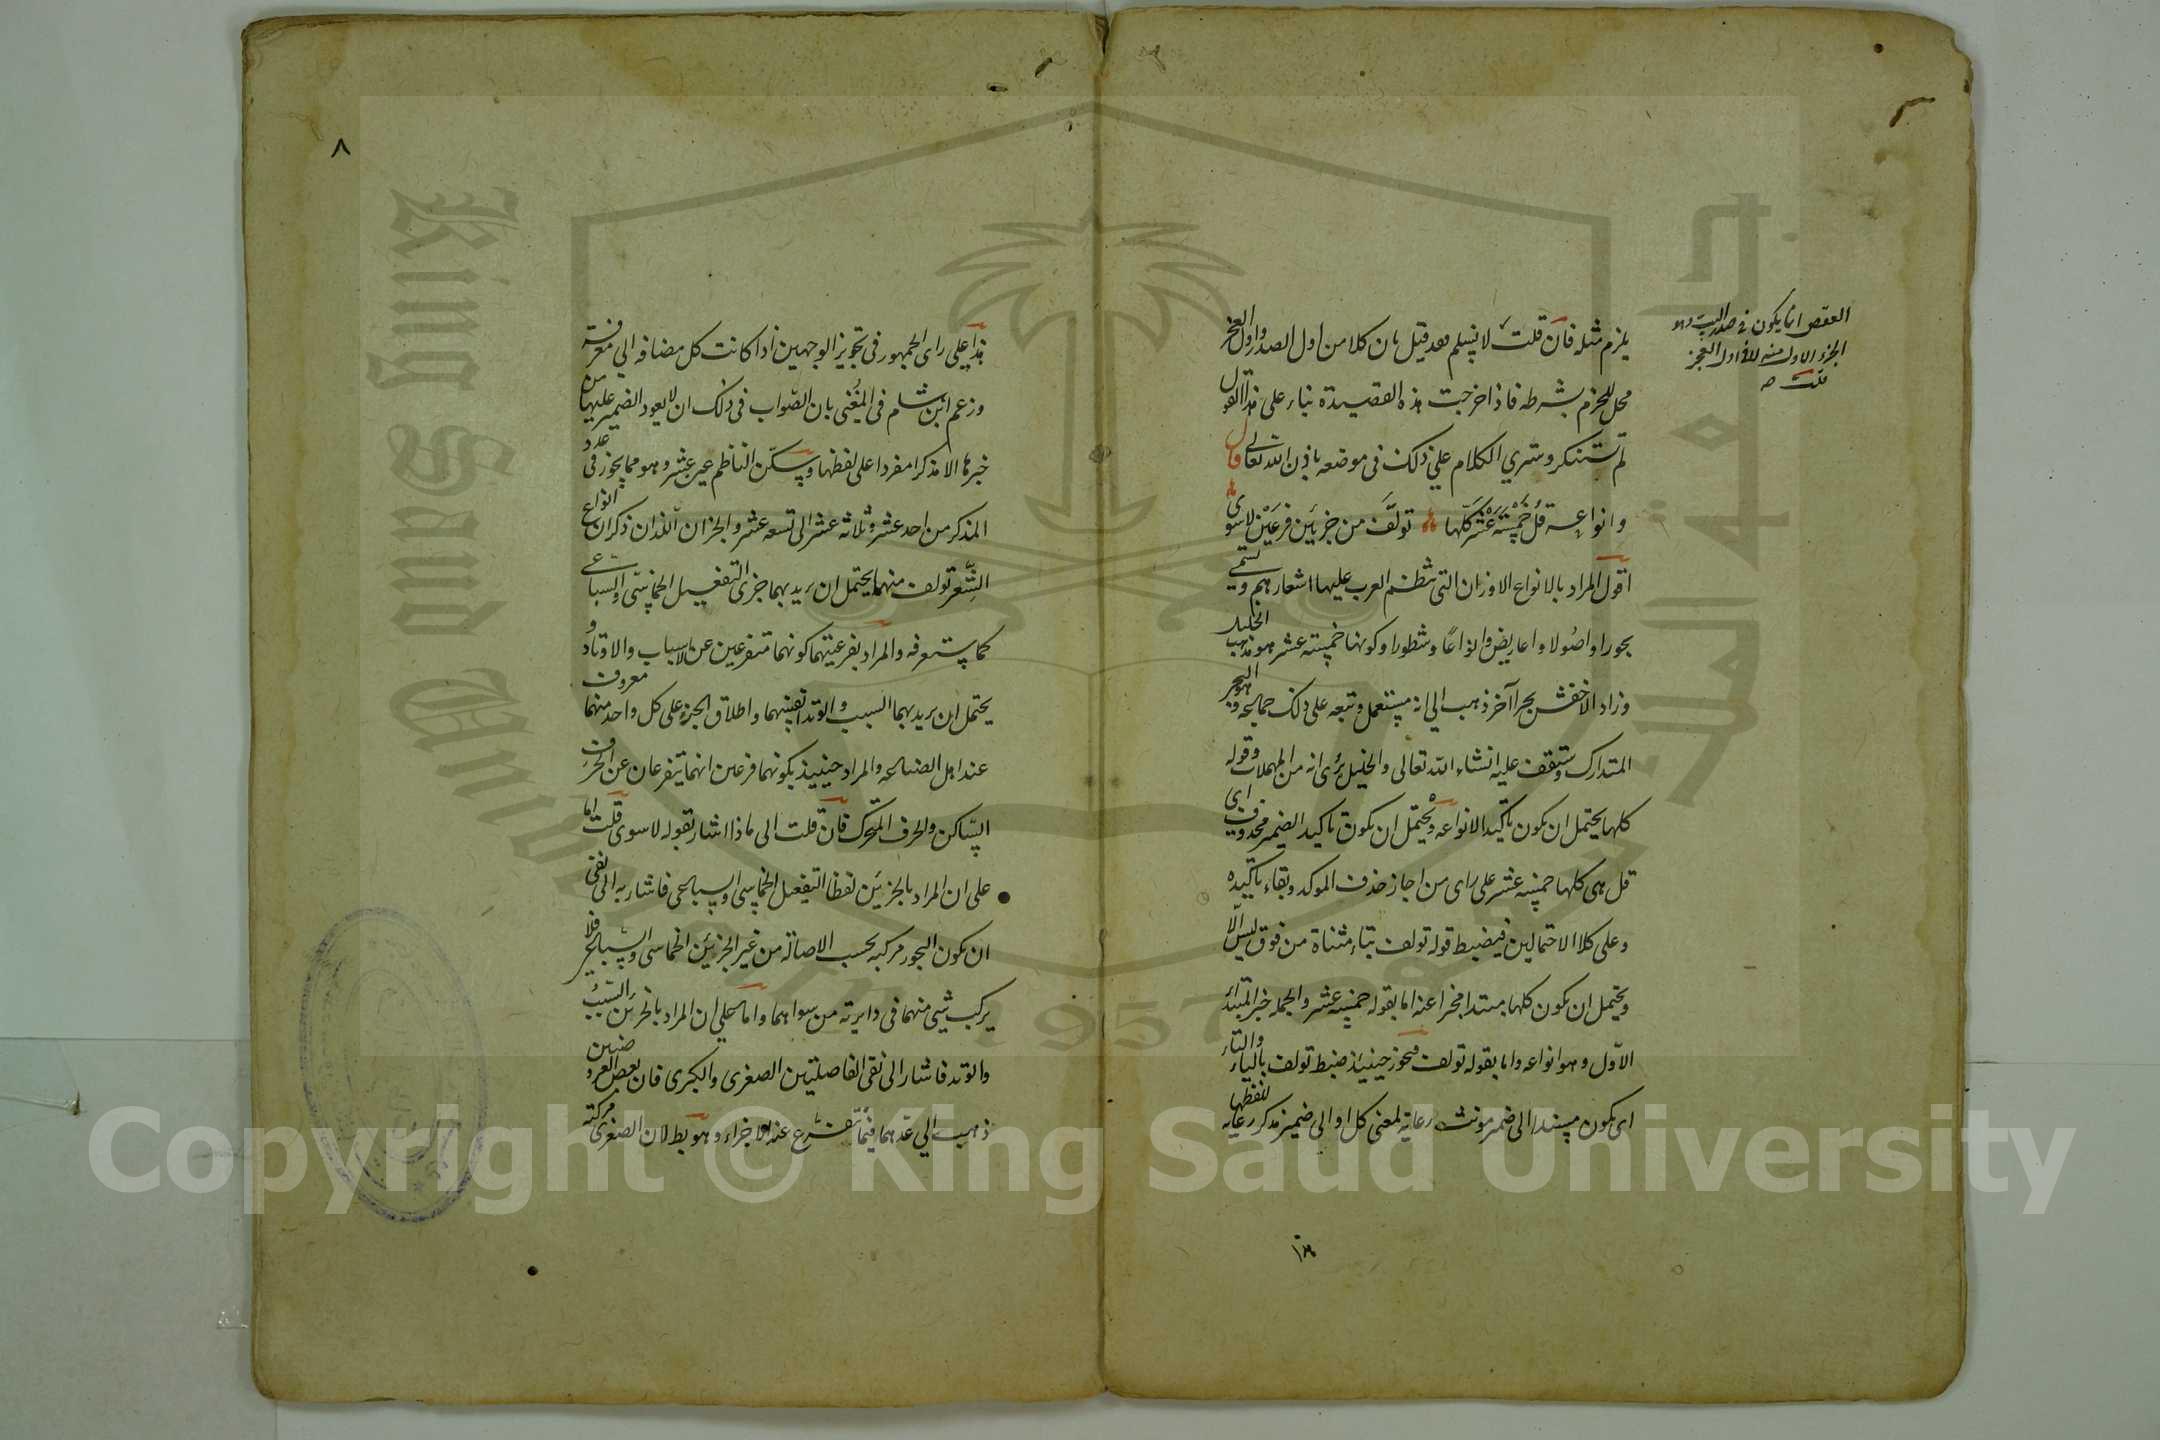 يلزم مثله فان قلت لا نسلم فقد قيل بان كلا من اول الصدر واول العجز
محل للخرم بشرطه فاذا خرجت هذه القصيدة بناء على هذا القول
لم تستنكر وسترى الكلام على ذلك في موضعه باذن الله تعالى قال
وانواعه قل خمسة عشر كلها تولف من جزئين فرعين لا سوى
اقول المراد بالانواع الاوزان التي نظم العرب عليها اشعارهم وتسمى
بحورا واصولا واعاريض وانواعا وشطورا وكونها خمسة عشر هو مذهب الخليل
وزاد الاخفش بحرا آخر ذهب الى انه مستعمل وتبعه على ذلك جماعة وهو البحر
المتدارك وستقف عليه انشاء الله تعالى والخليل يرى انه من المهملات وقوله
كلها يحتمل ان يكون تأكيدا لانواعه ويحتمل ان يكون تاكيد الضمير محذوف اى
قل هى كلها خمسة عشر على راى من اجاز حذف الموكد وبقاء تأكيده
وعلى كلا الاحتمالين فيضبط قوله تولف بتاء مثناة من فوق ليس الّا
ويحتمل ان يكون كلها مبتدا مخبرا عنه اما بقوله خمسة عشر والجملة خبر المبتدا
الاول وهو انواعه واما بقوله تولف فيجوز حينئذ ضبط تولف بالياء والتاء
اى يكون مسندا الى ضمير مونث رعاية لمعنى كل او الى ضمير مذكر رعاية للفظها
العقص انما يكون في صدر البيت وهو
الجزء الاول منه لا في اول العجز
قلت صه
هذا
٨
هذا على راى الجمهور في تجويز الوجهين اذا كانت كل مضافة الى معرفة
وزعم ابن هشام في المغنى بان الصواب في ذلك ان لا يعود الضمير عليها من
خبرها الا مذكرا مفردا على لفظها وسكن الناظم عين عشر وهو مما يجوز في عدد
المذكر من احد عشر وثلاثة عشر الى تسعة عشر والجزان اللذان ذكر ان انواع
الشعر تولف منهما يحتمل ان يريد بهما جزى التفعيل الخماسى والسباعى
كما ستعرفه والمراد بفرعيتهما كونهما متفرعين عن الاسباب والاوتاد و
يحتمل ان يريد بهما السبب والوتد انفسهما واطلاق الجزء على كل واحد منهما معروف
عند اهل الصناعة والمراد حينئذ بكونهما فرعين انهما يتفرعان عن الحرف
الساكن والحرف المتحرك فان قلت الى ماذا اشار بقوله لا سوى قلت اما
على ان المراد بالجزئين لفظا التفعيل الخماسى والسباعى فاشار به الى نفى
ان يكون البحور مركبة بحسب الاصالة من غير الجزئين الخماسى والسباعى فلا
يركب شيى منهما في دايرته من سواهما واما على ان المراد بالجزئين السبب
والوتد فاشار الى نفى الفاصلتين الصغرى والكبرى فان بعض العروضيين
ذهب الى عدهما فيما تتفرع عنه الاجزاء وهو بط لان الصغرى مركبة